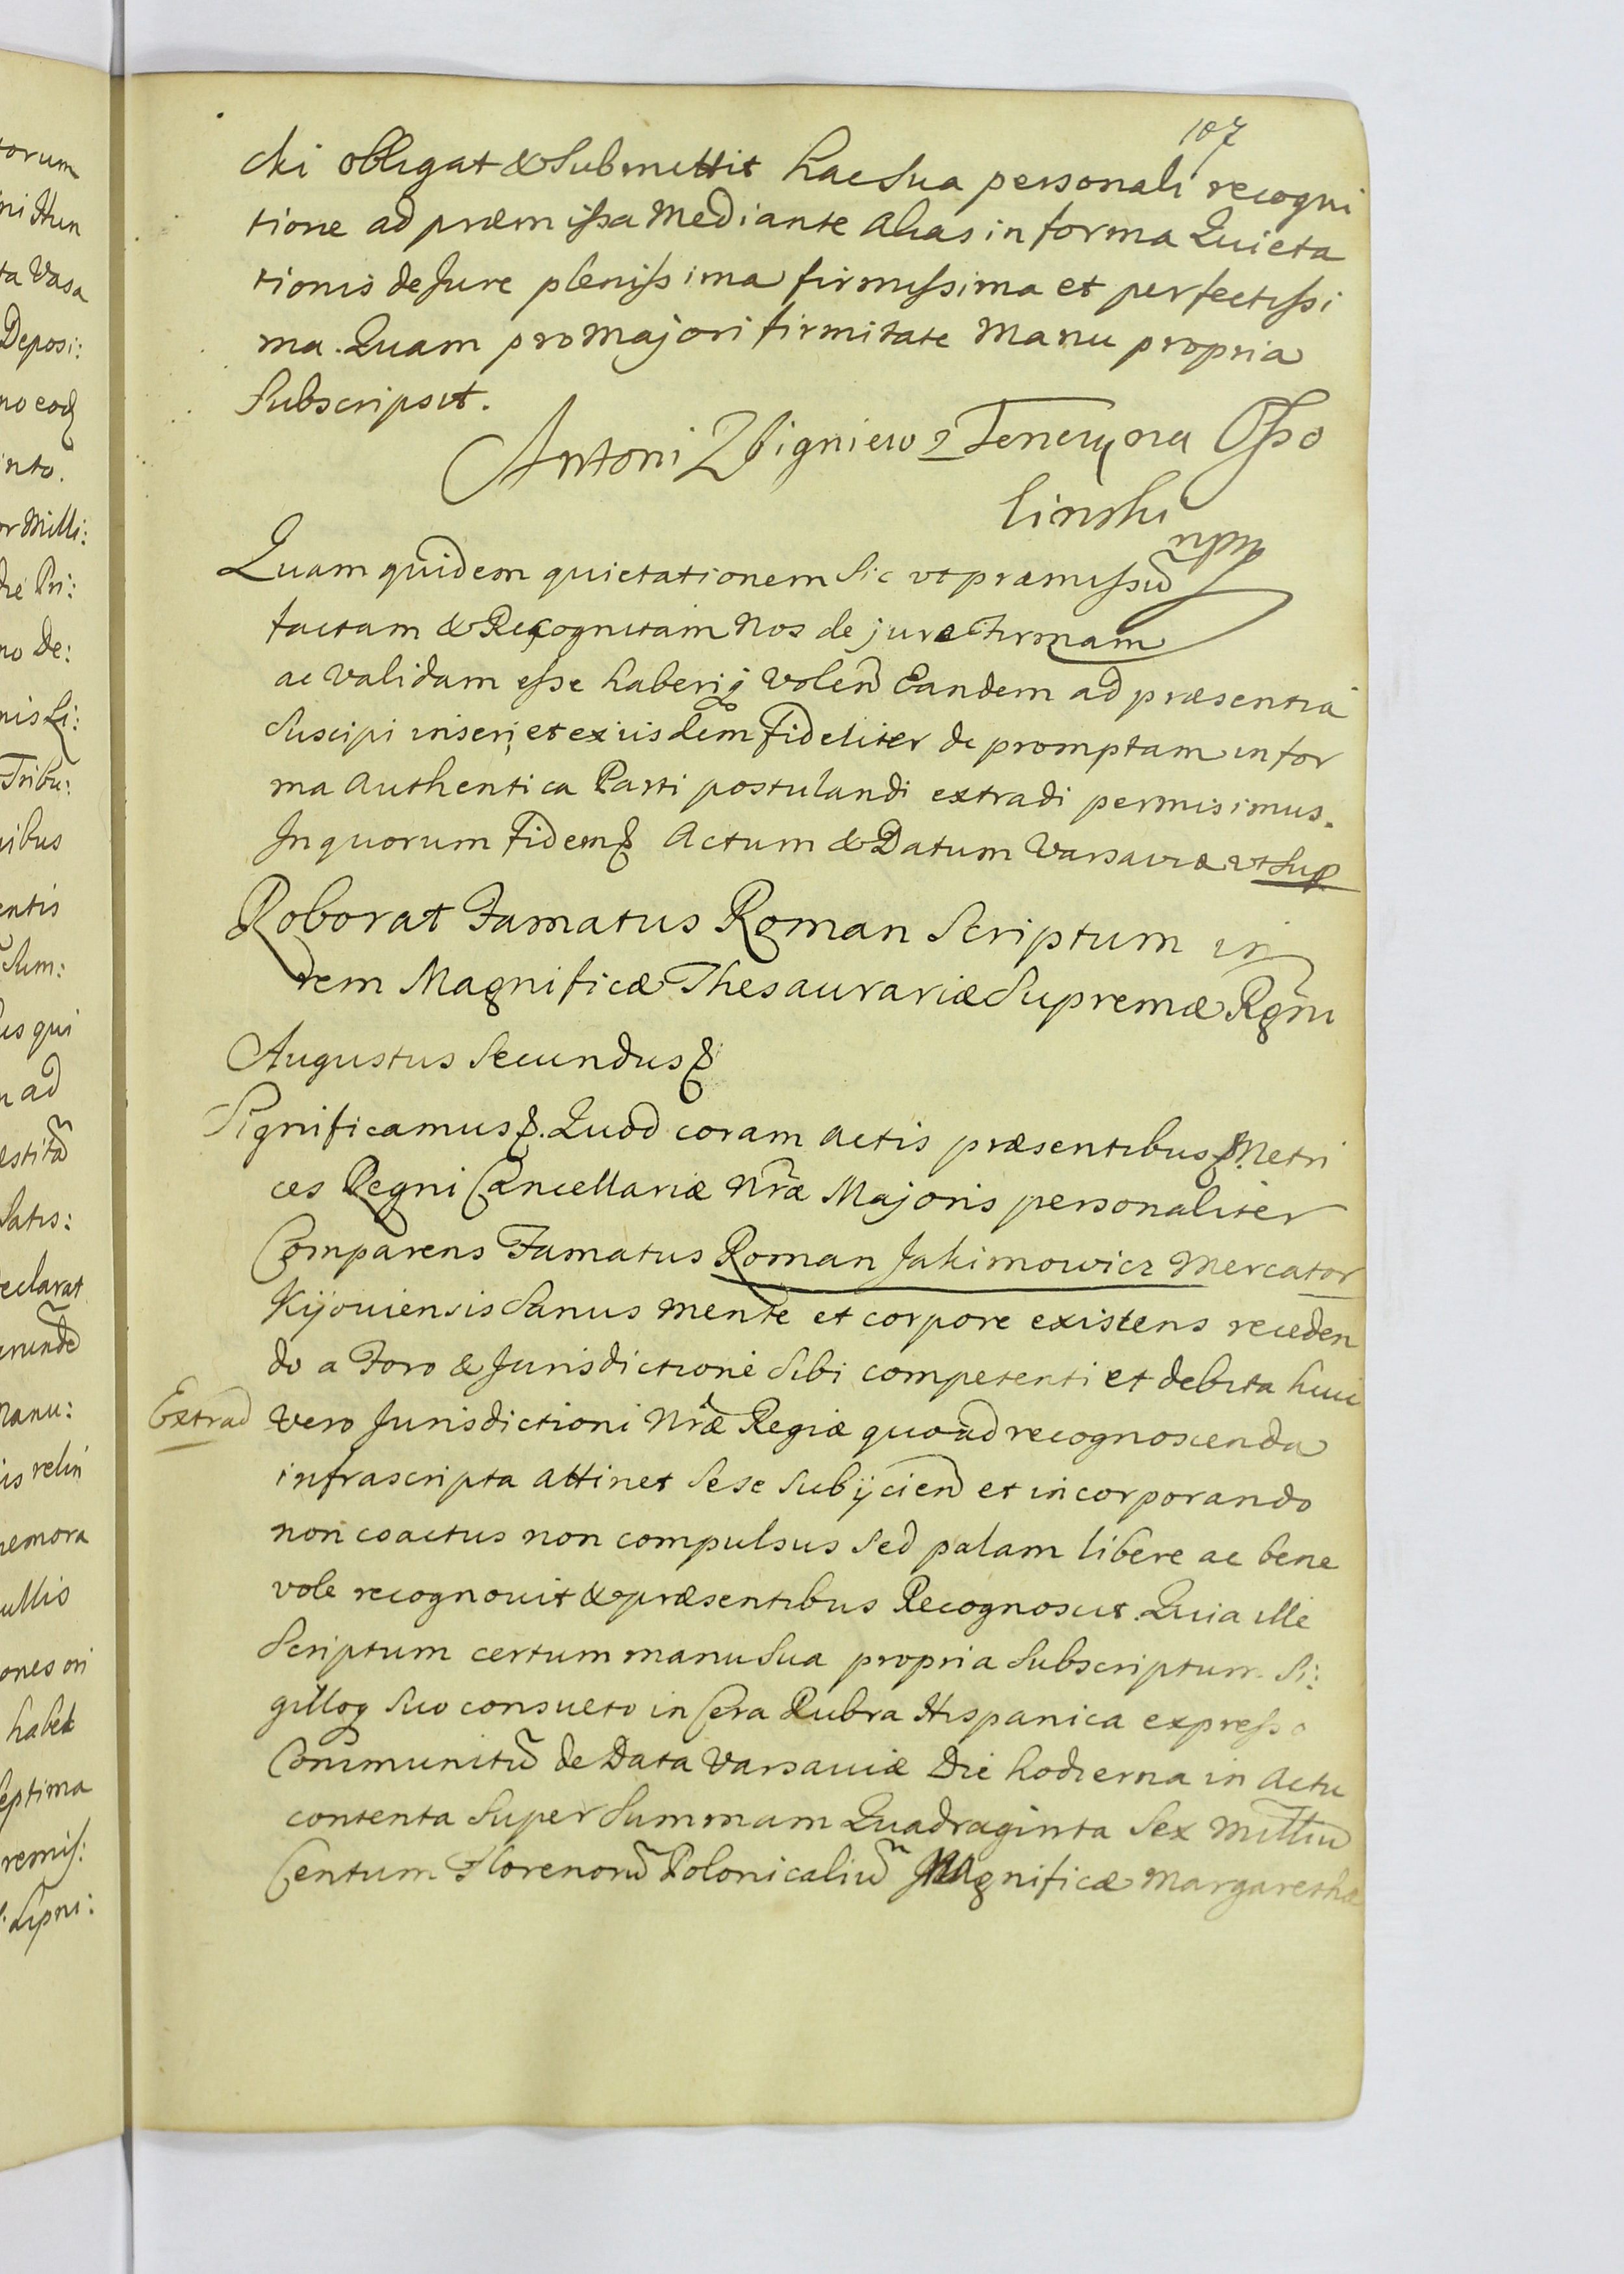 107
cki obligat & Submittit hac Sua personali recogni
tione ad præmissa Mediante alias in forma Quieta
tionis de Jure plenissima firmissima et perfectissi
ma. Quam pro majori firmitate Manu propria
Subscripsit.
Antoni Zbigniew z Tenczyna Osso
linski
mpp
Quam quidem quietationem Sic vt præmissũ
factam & Recognitam Nos de jure Firmam
ac Validam esse haberiq̃ Volen̄ Eandem ad præsentia
Suscipi inseri et ex iisdem Fideliter de promptam in for
ma Authentica Parti postulandi extradi permisimus.
In quorum Fidem & Actum & Datum Varsaviæ vt Sup
Roborat Famatus Roman Scriptum in
rem Magnificæ Thesaurariæ Supremæ Rgñi
Augustus Secundus &
Significamus &. Quod coram actis præsentibus Metri
ces Regni Cancellariæ Nr̃æ Majoris personaliter
Comparens Famatus Roman Jakimowicz Mercator
Kijouiensis Sanus mente et corpore existens receden
do a Foro & Jurisdictione Sibi competenti et debita huic
Extrad
vero Jurisdictioni Nr̃æ Regiæ quo ad recognoscenda
infrascripta attinet Sese Subijcien̄ et incorporando
non coactus non compulsus Sed palam libere ac bene
vole recognouit & præsentibus Recognoscit. Quia ille
Scriptum certum manu Sua propria Subscriptum Si:
gilloq̃ Suo consueto in Cera Rubra Hispanica expresso
Communitũ de Data Varsauiæ Die hodierna in Actu
contenta Super Summam Quadraginta Sex Milliũ
Centum Florenorũ Polonicaliũ Magnificæ Margarethæ